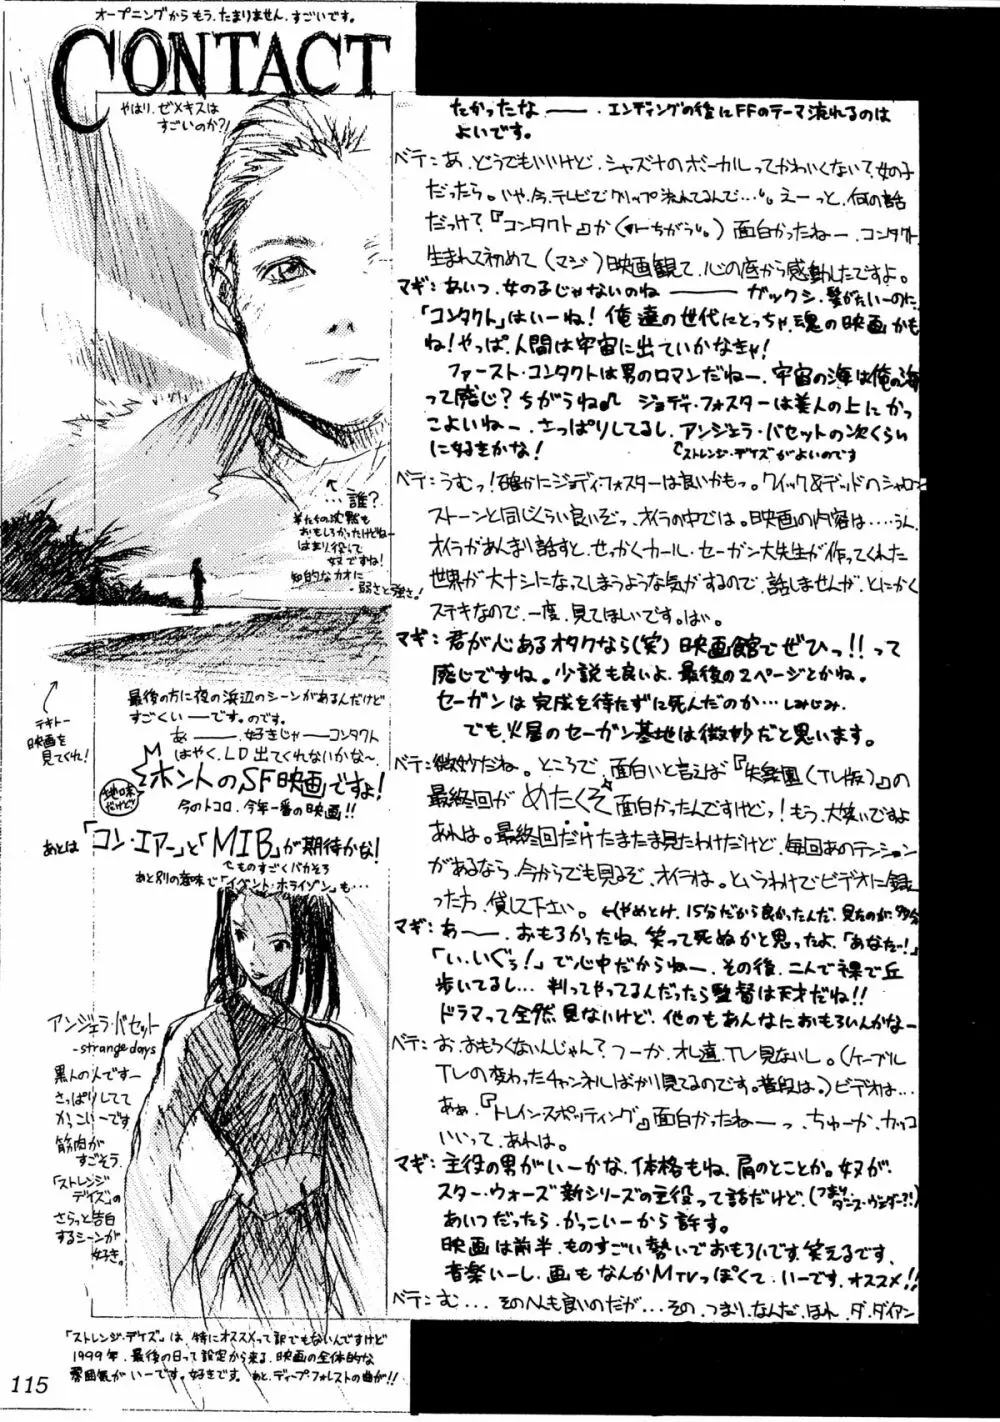 オープニングからもう、たまりません、すごいです。
CONTACT
やはり、ゼメキスは
すごいのか?!
↑
…誰?
羊たちの沈黙も
おもしろかったけどねー
はまり役して
奴ですね!
知的なカオに
弱さと強さ!
テキトー
映画を
見てくれ!
最後の方に夜の浜辺のシーンがあるんだけど
すごくいーです。のです。
あー、好きじゃーコンタクト
はやく、LD出てくれないかな〜、
ホントのSF映画ですよ!
地味
だけど
今のトコロ、今年一番の映画!!
あとは「コン・エアー」と「MIB」が期待かな!
ものすごくバカそう
あと別の意味で「イベント・ホライゾン」も…
アンジェラ・バセット
-strange days
黒人の人ですー
さっぱりしてて
かっこいーです
筋肉が
すごそう。
「ストレンジ
デイズ」の
さらっと告白
するシーンが
好き。
「ストレンジ・デイズ」は、特にオススメって訳でもないんですけど
1999年、最後の日って設定から来る、映画の全体的な
雰囲気がいーです。好きです。あと、ディープ・フォレストの曲が!!
115
たかったなー、エンディングの後にFFのテーマ流れるのは
よいです。
ベテ:あ、どうでもいいけど、シャズナのボーカルってかわいくない?女の子
だったら。いや、今、テレビでクリップ流れてるんで…。えーっと、何の話
だっけ?『コンタクト』か(←ちがう。)面白かったねー、コンタクト
生まれて初めて(マジ)映画観て、心の底から感動したですよ。
マギ:あいつ、女の子じゃないのね――ガックシ、髪がたいーのに
「コンタクト」はいーね!俺達の世代にとっちゃ、魂の映画かも
ね!やっぱ、人間は宇宙に出ていかなきゃ!
ファースト・コンタクトは男のロマンだねー、宇宙の海は俺の海
って感じ?ちがうね♪ ジョディ・フォスターは美人の上にかっ
こよいねー、さっぱりしてるし、アンジェラ・バセットの次くらい
に好きかな!
ストレンジ・デイズがよいのです
ベテ:うむっ!確かにジョディ・フォスターは良いかもっ。クイック&デッドのシャロン
ストーンと同じくらい良いぞっ、オイラの中では。映画の内容は…うん、
オイラがあんまり話すと、せっかくカール・セーガン大先生が作ってくれた
世界が大ナシになってしまうような気がするので、話しませんが、とにかく
ステキなので、一度、見てほしいです。はい。
マギ:君が心あるオタクなら(笑)映画館でぜひっ!!って
感じですね。少説も良いよ、最後の2ページとかね。
セーガンは完成を待たずに死んだのか…しみじみ、
でも、火星のセーガン基地は微妙だと思います。
ベテ:微妙だね。ところで、面白いと言えば『失楽園(TV版)』の
最終回がめたくそ面白かったんですけどっ!もう、大笑いですよ
あれは。最終回だけたまたま見たわけだけど、毎回あのテンション
があるなら、今からでも見るぞ、オイラは。というわけでビデオに録
った方、貸して下さい。←(やめとけ、15分だから良かったんだ、見たのが、
マギ:あー、おもろかったね、笑って死ぬかと思ったよ、「あなたっ!」
「い、いぐぅ!」で心中だからねー、その後、二人で裸で丘
歩いてるし…判ってやってるんだったら監督は天才だね!!
ドラマって全然、見ないけど、他のもあんなにおもろいんかなー
ベテ:お、おもろくないんじゃん?つーか、オレ達、TV見ないし。(ケーブル
TVの変わったチャンネルばかり見てるのです。普段は。)ビデオは…
あぁ、『トレイン・スポッティング』面白かったねーっ、ちゅーか、カッコ
いいって、あれは。
マギ:主役の男がいーかな、体格もね、肩のとことか。奴が、
スター・ウォーズ新シリーズの主役って話だけど、
あいつだったら、かっこいーから許す。
映画は前半、ものすごい勢いでおもろいです、笑えるです、
音楽いーし、画もなんかMTVっぽくて、いーです、オススメ!!
ベテ:む…、そのへんも良いのだが…その、つまり、なんだ、ほれ、ダ、ダイアン